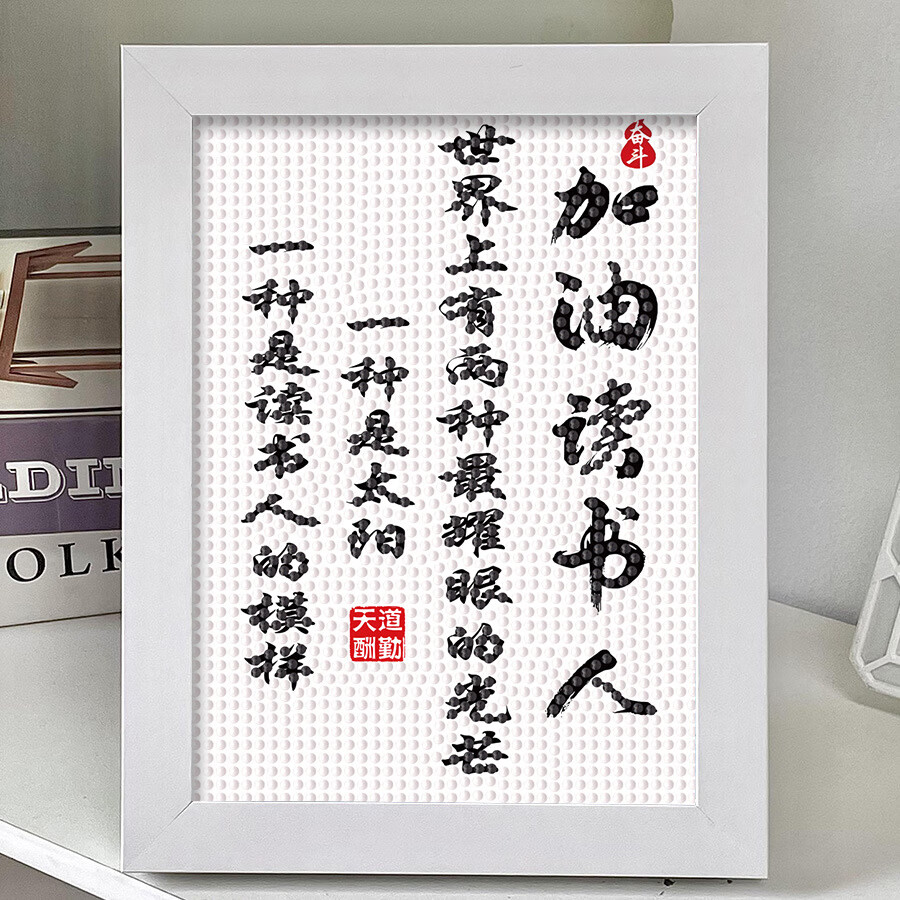 奋斗
加油读书人
世界上有两种最耀眼的光芒
一种是太阳
天道
酬勤
一种是读书人的模样
OLK